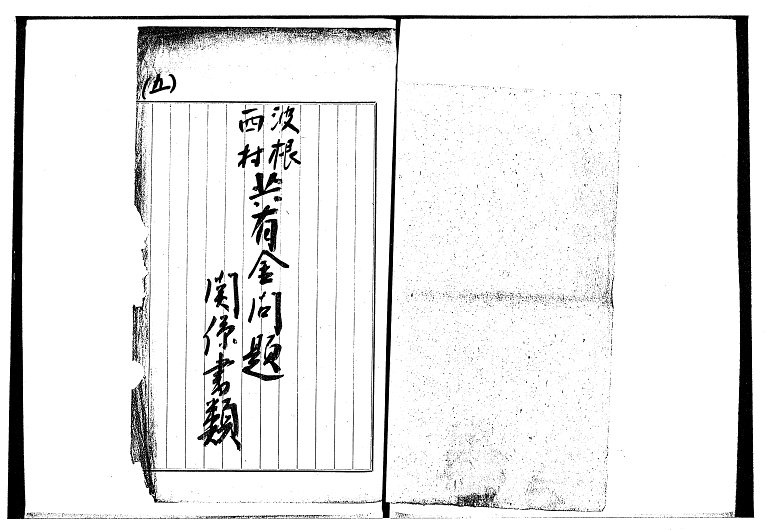 (五)
波根
西村
共有金問題
関係書類